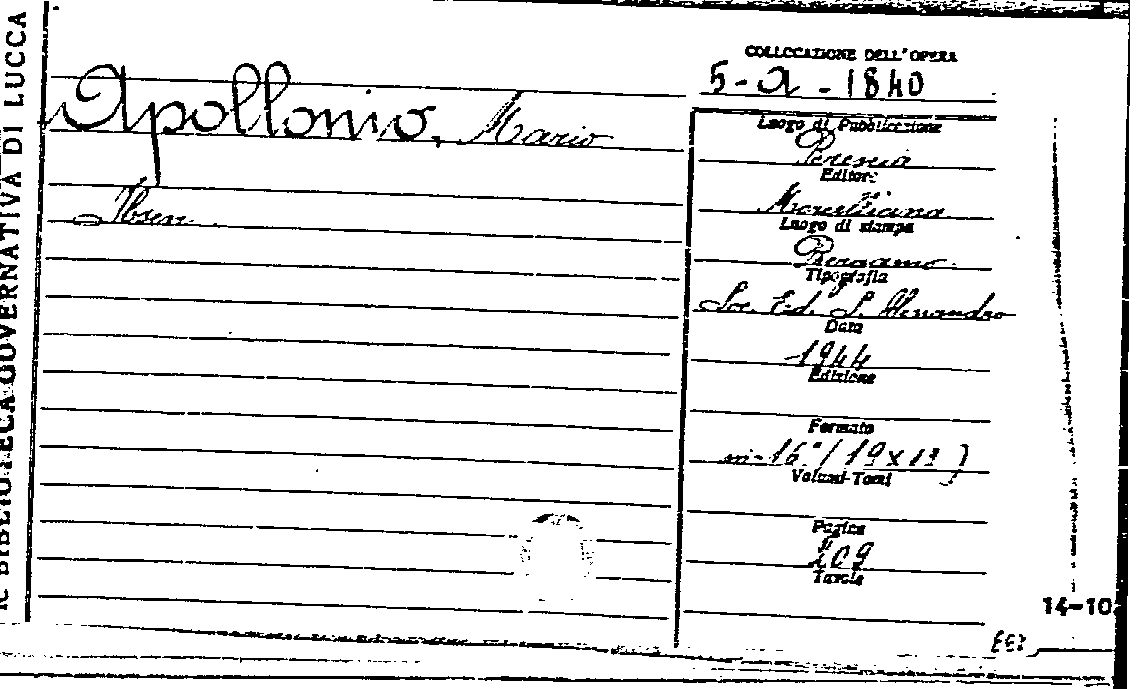 BIBLIOTECA GOVERNATIVA DI LUCCA
COLLOCAZIONE DELL'OPERA
5-a-1840
Apollonio, Mario
Ibsen
Luogo di Pubblicazione
Brescia
Editore
Morcelliana
Luogo di stampa
Bergamo
Tipografia
Soc. Ed. S. Alessandro
Data
1944
Edizione
Formato
in-16° (19x13)
Volumi-Tomi
Pagine
209
Tavole
14-10